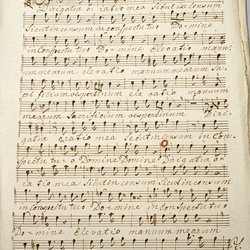 Dirigatur oratio mea Sicut incensum
Sicut incensum in conspectu tuo Domine
in conspectu tuo Domine Elevatio manu
um mearum elevatio manuum mearum Sa
crificium vespertinum elevatio manuum
mearum Sacrificium vespertinum Diri
gatur oratio mea Sicut incensum in Con
spectu tuo o Domine Domine Dirigatur o
ratio mea Sicut incensum Sicut incensum
in conspectu tuo Domine in conspectu tuo
Domine Elevatio manuum mearum